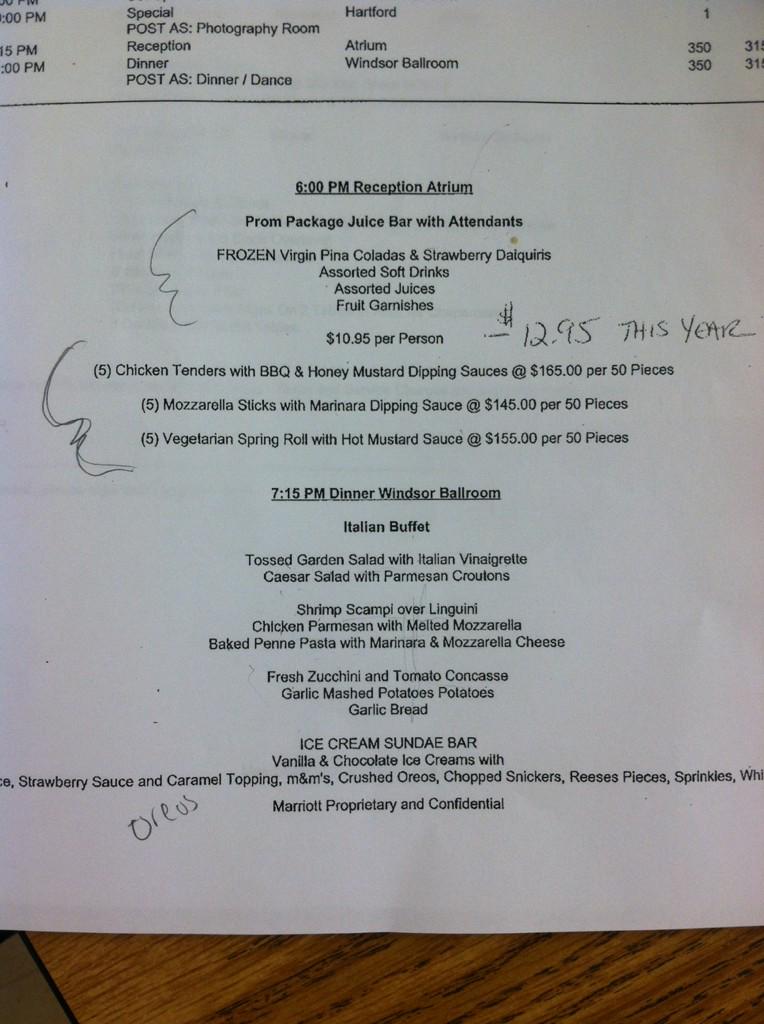 :00 PM Special Hartford 1
POST AS: Photography Room
15 PM Reception Atrium 350 315
:00 PM Dinner Windsor Ballroom 350 315
POST AS: Dinner / Dance
6:00 PM Reception Atrium
Prom Package Juice Bar with Attendants
FROZEN Virgin Pina Coladas & Strawberry Daiquiris
Assorted Soft Drinks
Assorted Juices
Fruit Garnishes
$10.95 per Person — $12.95 THIS YEAR
(5) Chicken Tenders with BBQ & Honey Mustard Dipping Sauces @ $165.00 per 50 Pieces
(5) Mozzarella Sticks with Marinara Dipping Sauce @ $145.00 per 50 Pieces
(5) Vegetarian Spring Roll with Hot Mustard Sauce @ $155.00 per 50 Pieces
7:15 PM Dinner Windsor Ballroom
Italian Buffet
Tossed Garden Salad with Italian Vinaigrette
Caesar Salad with Parmesan Croutons
Shrimp Scampi over Linguini
Chicken Parmesan with Melted Mozzarella
Baked Penne Pasta with Marinara & Mozzarella Cheese
Fresh Zucchini and Tomato Concasse
Garlic Mashed Potatoes Potatoes
Garlic Bread
ICE CREAM SUNDAE BAR
Vanilla & Chocolate Ice Creams with
ce, Strawberry Sauce and Caramel Topping, m&m's, Crushed Oreos, Chopped Snickers, Reeses Pieces, Sprinkles, Whi
Marriott Proprietary and Confidential
oreos